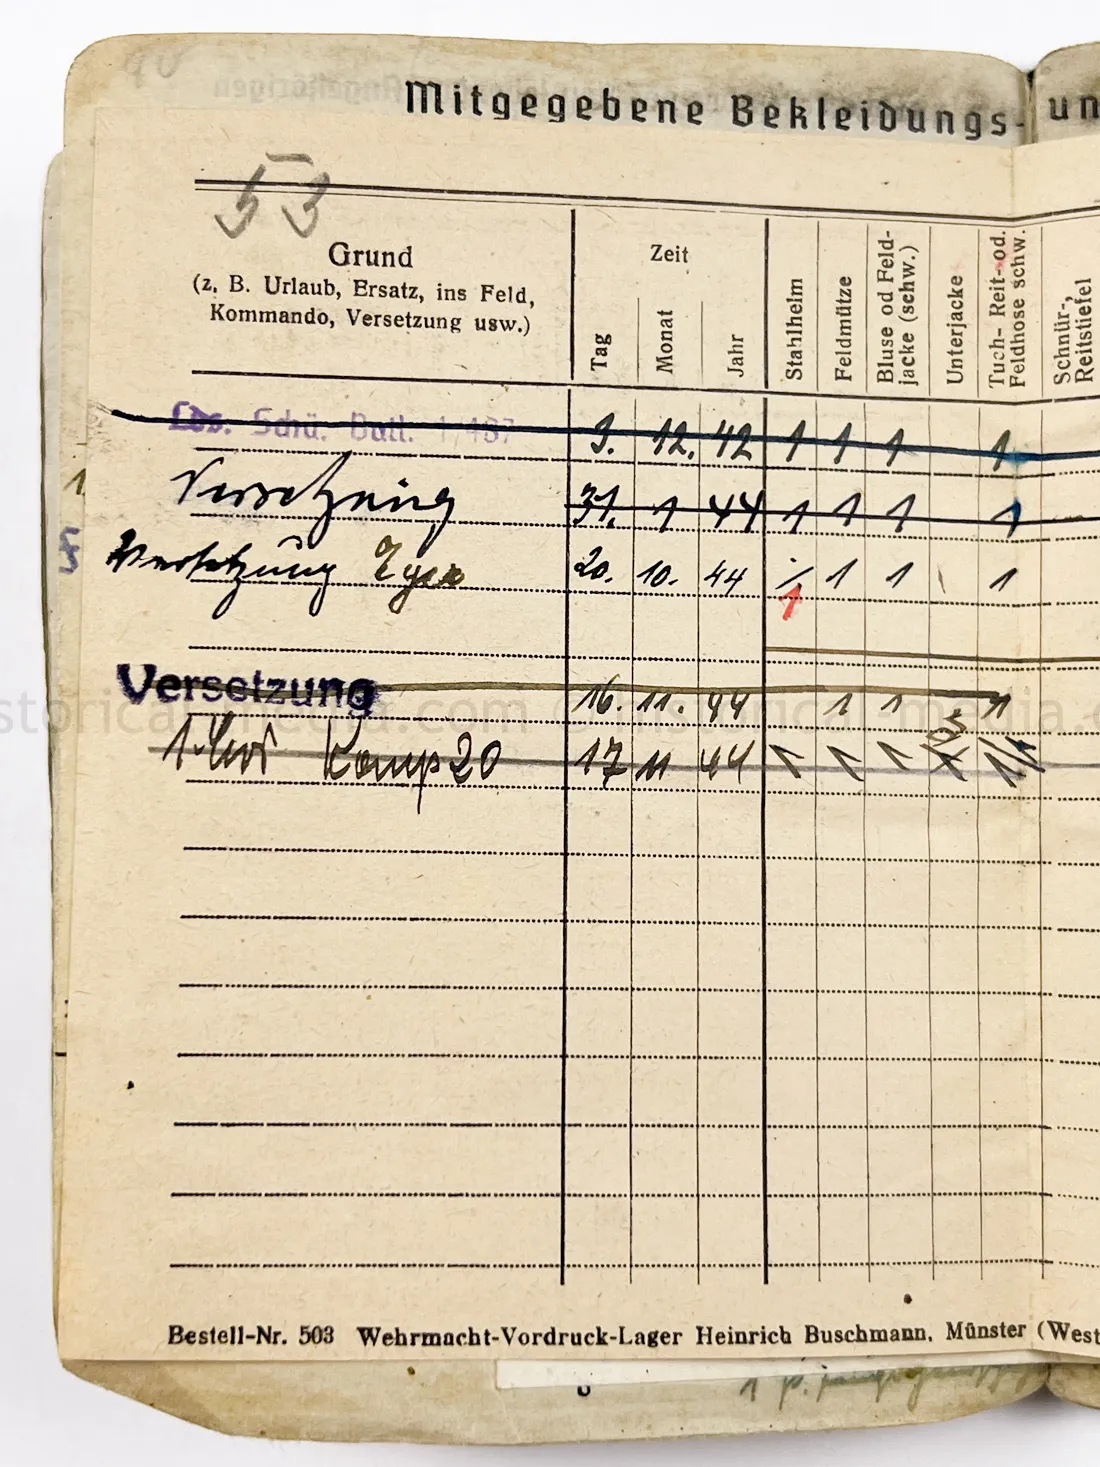 Mitgegebene Bekleidungs- un
53
Grund
(z. B. Urlaub, Ersatz, ins Feld,
Kommando, Versetzung usw.)
Zeit
Tag
Monat
Jahr
Stahlhelm
Feldmütze
Bluse od Feld-
jacke (schw.)
Unterjacke
Tuch- Reit- od.
Feldhose schw.
Schnür-,
Reitstiefel
Lds. Schü. Batl. 1/487 9. 12. 42 1 1 1 1
Versetzung 31. 1 44 1 1 1 1
Versetzung 20. 10. 44 1 1 1 1
Versetzung 16. 11. 44 1 1 1
Komp 20 17 11 44 1 1 1
Bestell-Nr. 503 Wehrmacht-Vordruck-Lager Heinrich Buschmann, Münster (West